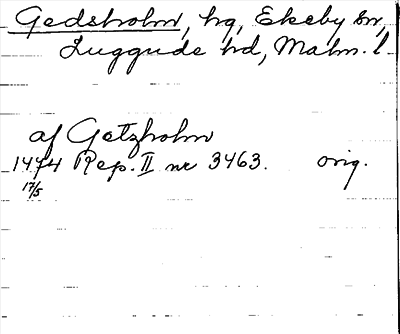 Gedsholm, hg, Ekeby sn,
Luggude hd, Malm. l.
af Getzholm
1474 Rep. II nr 3463. orig.
17/5